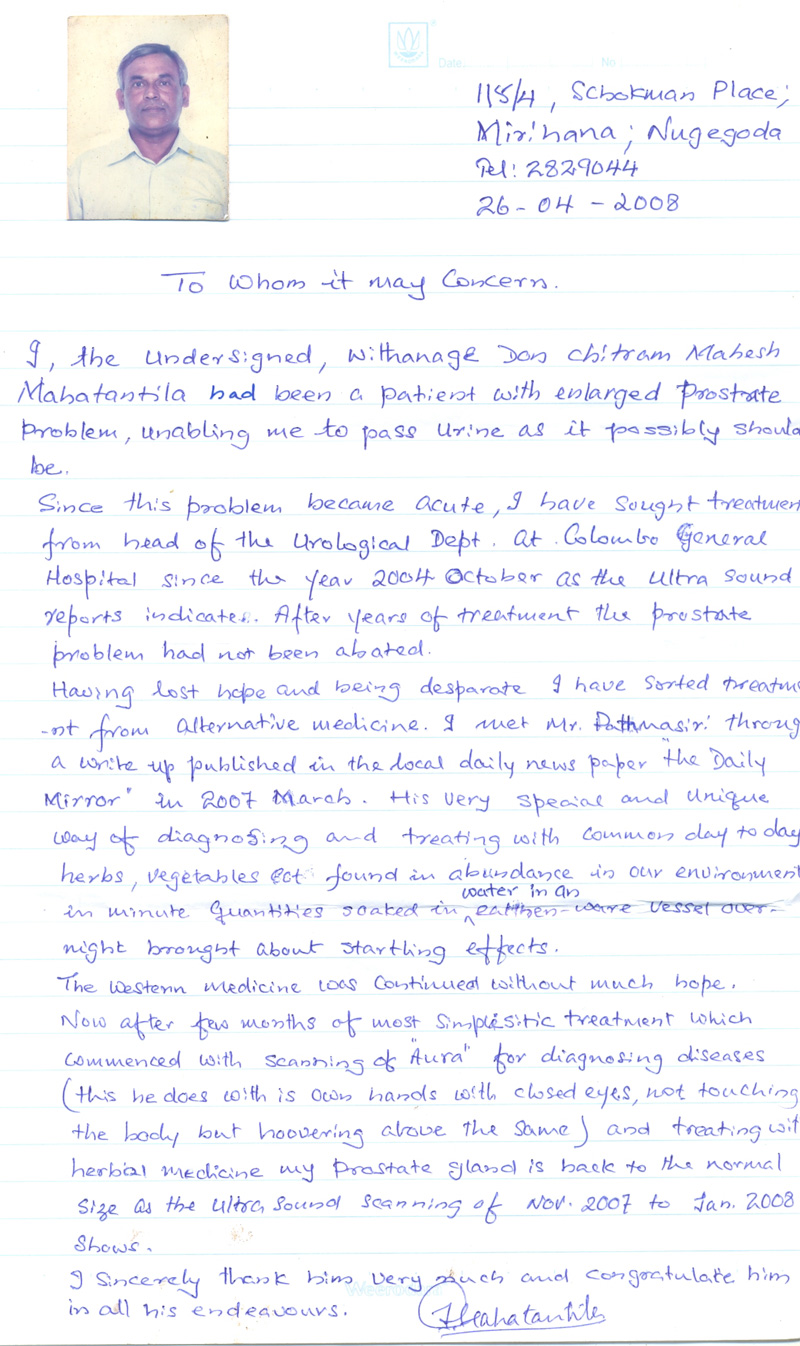 Date: No
115/4, Schokman Place;
Mirihana; Nugegoda
Tel: 2829044
26-04-2008
To Whom it may Concern.
I, the undersigned, Withanage Don Chitram Mahesh
Mahatantila had been a patient with enlarged Prostrate
Problem, unabling me to pass Urine as it possibly should
be.
Since this problem became acute, I have sought treatmen
from head of the Urological Dept. at Colombo General
Hospital since the year 2004 October as the Ultra Sound
reports indicates. After years of treatment the prostrate
problem had not been abated.
Having lost hope and being desparate I have sorted treatme
-nt from alternative medicine. I met Mr. Pathmasiri throug
a write up published in the local daily news paper "the Daily
Mirror" in 2007 March. His very special and unique
way of diagnosing and treating with common day to day
herbs, vegetables ect found in abundance in our environment
water in an
in minute quantities soaked in ^ earthen-ware vessel over-
night brought about startling effects.
The western medicine was continued without much hope.
Now after few months of most simplisitic treatment which
commenced with scanning of "Aura" for diagnosing diseases
(this he does with is own hands with closed eyes, not touching
the body but hoovering above the same) and treating wit
herbal medicine my Prostate gland is back to the normal
size as the ultra sound scanning of Nov. 2007 to Jan. 2008
shows.
I sincerely thank him very much and congratulate him
in all his endeavours.